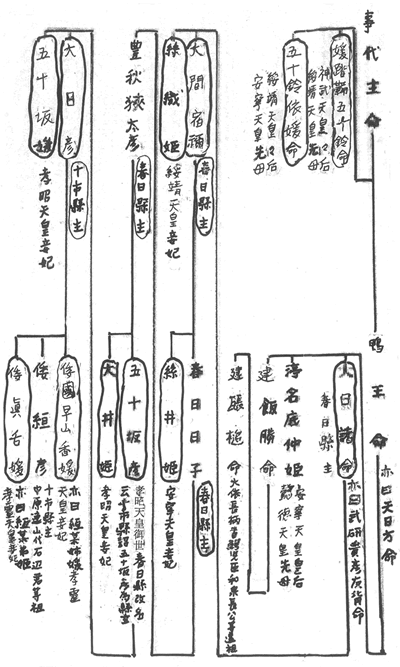 事代主命
媛蹈鞴五十鈴命
神武天皇之后
綏靖天皇先母
五十鈴依媛命
綏靖天皇后
安寧天皇先母
鴨王命
亦曰天日方命
大日諸命
春日縣主
亦曰武研貴彦友背命
渟名底仲姫
安寧天皇皇后
懿徳天皇先母
建飯勝命
建甕槌命
大間宿禰
春日縣主
糸織姫
綏靖天皇妾妃
春日日子
春日縣主
糸井姫
安寧天皇妾妃
豊秋狭太彦
春日縣主
五十坂彦
孝昭天皇御世春日縣改名
云十市縣以五十坂彦為縣主
大井姫
孝昭天皇妾妃
大日彦
十市縣主
五十坂媛
孝昭天皇妾妃
倭國早山香媛
亦曰絙某姉媛孝靈
天皇妾妃
倭絙彦
十市縣主
中原連山代石辺君等祖
倭眞舌媛
亦曰絙某弟姫
孝靈天皇妾妃